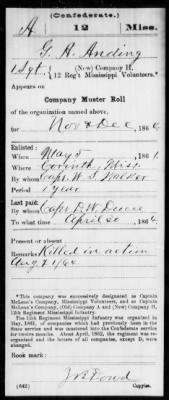 (Confederate.)
A 12 Miss.
G. H. Anding
1 Sgt, (New) Company H,
12 Reg't Mississippi Volunteers.*
Appears on
Company Muster Roll
of the organization named above,
for Nov & Dec, 1864
Enlisted:
When May 5, 1861
Where Corinth, Miss.
By whom Capt. W. S. Walker
Period 1 year
Last paid:
By whom Capt. D. W.
To what time April 30, 186
Present or absent
Remarks: Killed in action
Aug 21/64
*This company was successively designated as Captain
McLean's Company, Mississippi Volunteers, and as Captain
McLean's Company, (Old) Company A and (New) Company H,
12th Regiment Mississippi Infantry.
The 12th Regiment Mississippi Infantry was organized in
May, 1861, of companies which had previously been in the
State service and was mustered into the Confederate service
for twelve months. About April, 1862, the regiment was re-
organized and the letters of all companies, except D, were
changed.
Book mark:
(642) Copyist.